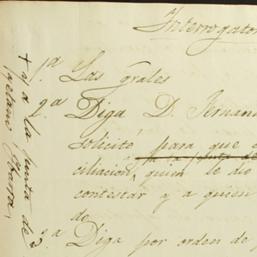 Interrogato
1ª Las grales
2ª Diga D. Fernan
solicitó para que
ciliación, quien le dio
contestar y a quien
de
3ª Diga por orden de
+ si a la junta de